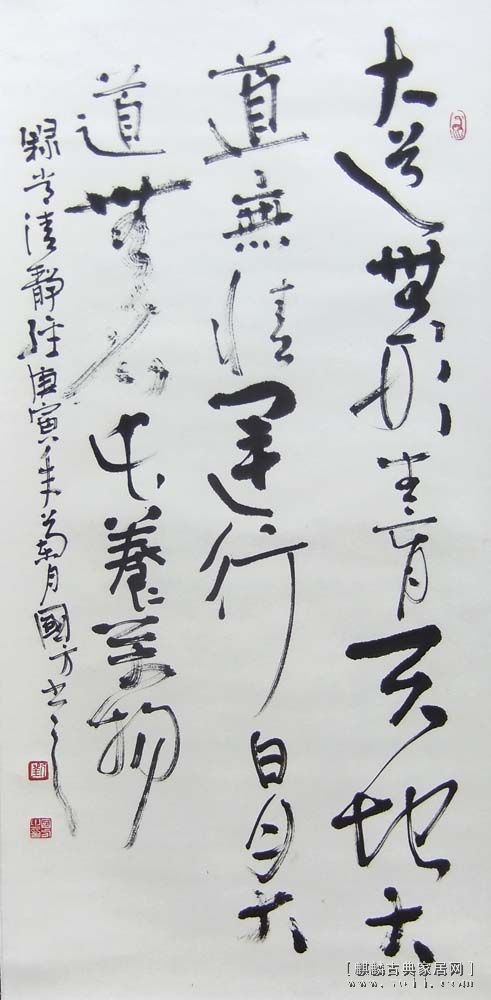 大道無形生育天地大
道無情運行日月大
道無名長養萬物
錄常清靜經庚寅年菊月國方書之
[麒麟古典家居网]